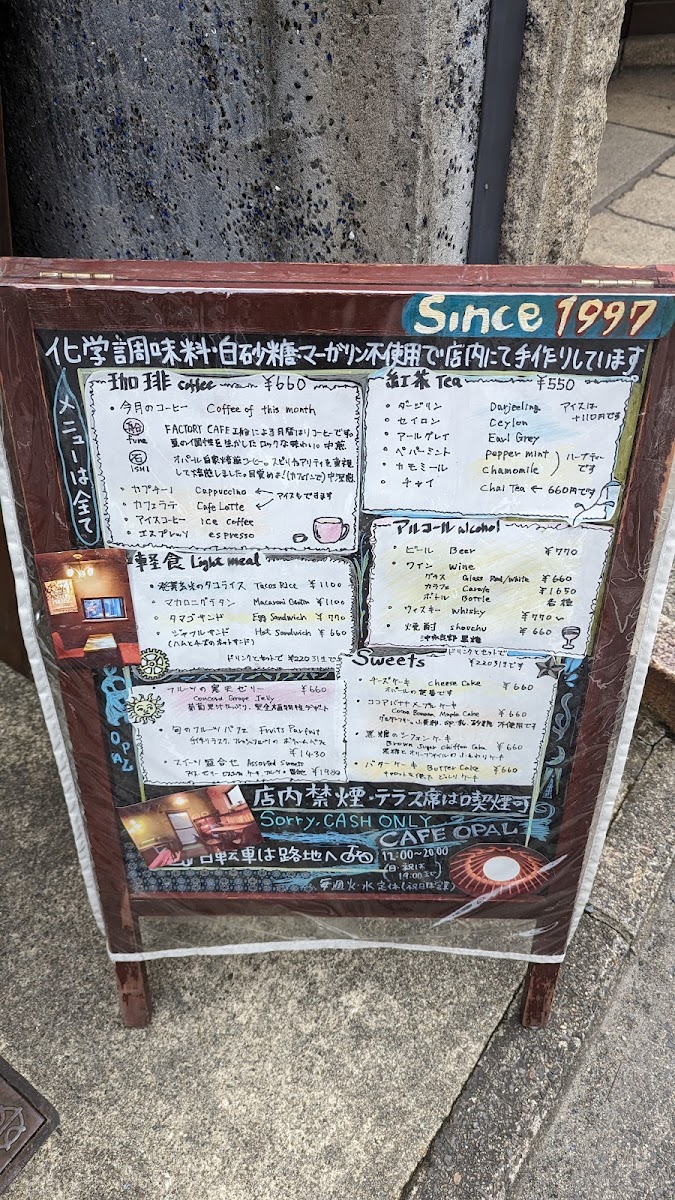 Since 1997
化学調味料・白砂糖・マーガリン不使用で店内にて手作りしています
メニューは全て
珈琲 coffee ¥660
・今月のコーヒー Coffee of this month
fune FACTORY CAFE工船による月替りコーヒーです。
ISHI
・カプチーノ Cappuccino
・カフェラテ Cafe Latte
アイスもできます
・アイスコーヒー ice coffee
・エスプレッソ espresso
紅茶 Tea ¥550
・ダージリン Darjeeling
・セイロン Ceylon
・アールグレイ Earl Grey
アイスは
+110円です
・ペパーミント pepper mint
・カモミール chamomile
ハーブティー
です
・チャイ Chai Tea ← 660円です
アルコール alcohol
・ビール Beer ¥770
・ワイン Wine
グラス Glass Red/white ¥660
カラフェ Carafe ¥1650
ボトル Bottle 各種
・ウィスキー Whisky ¥770〜
・焼酎 shouchu ¥660
ドリンクとセットで
¥220引きです
軽食 Light meal
タコライス Tacos Rice ¥1100
・マカロニグラタン Macaroni Gratin ¥1100
・タマゴサンド Egg Sandwich ¥770
・ジャッフルサンド Hot Sandwich ¥660
ドリンクとセットで ¥220引きです
Sweets
・フルーツの寒天ゼリー ¥660
Concord Grape Jelly
・旬のフルーツパフェ Fruits Parfait
¥1430
・スイーツ盛合せ Assorted Sweets
・チーズケーキ cheese Cake ¥660
オパールの定番です
・ココアバナナメープルケーキ
Cocoa Banana Maple Cake ¥660
・黒糖のシフォンケーキ
Brown sugar chiffon Cake ¥660
・バターケーキ Butter Cake ¥660
OPAL
店内禁煙・テラス席は喫煙可
Sorry, CASH ONLY
CAFE OPAL
自転車は路地へ
12:00〜20:00
(日・祝は
19:00まで)
毎週火・水定休